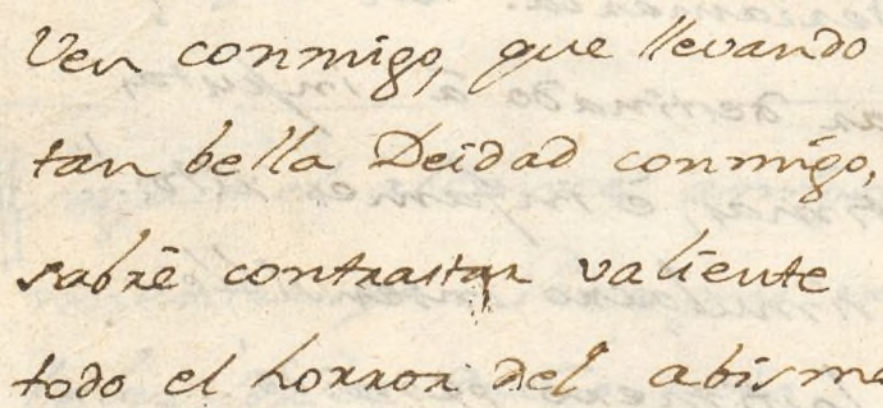 Ven conmigo, que llevando
tan bella Deidad conmigo,
sabrè contrastar valiente
todo el horror del abismo